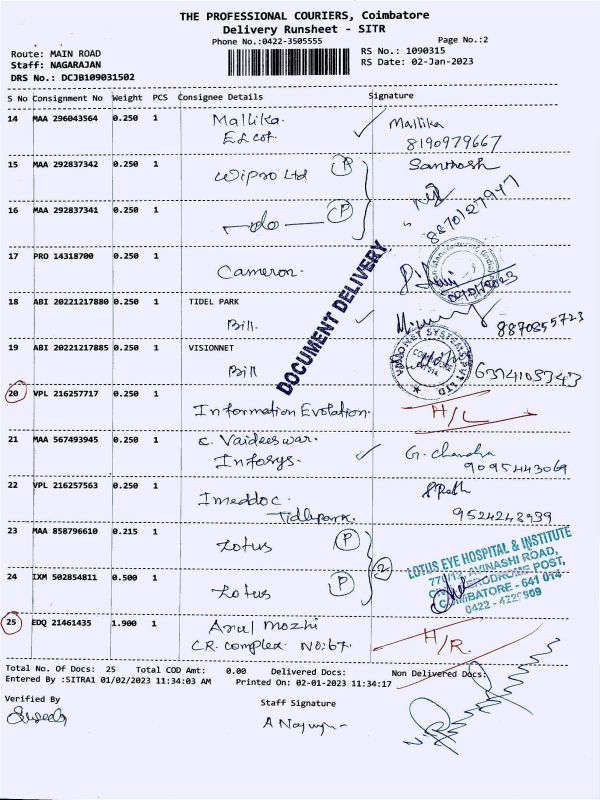 THE PROFESSIONAL COURIERS, Coimbatore
Delivery Runsheet - SITR
Phone No.:0422-3505555 Page No.:2
Route: MAIN ROAD RS No.: 1090315
Staff: NAGARAJAN RS Date: 02-Jan-2023
DRS No.: DCJB109031502
S No Consignment No Weight PCS Consignee Details Signature
14 MAA 296043564 0.250 1 Mallika. Mallika
8190979667
15 MAA 292837342 0.250 1 Wipro Ltd P Santhosh
16 MAA 292837341 0.250 1 -do- P 8870127947
17 PRO 14318700 0.250 1
Cameron.
18 ABI 20221217880 0.250 1 TIDEL PARK
Bill. 8870855723
19 ABI 20221217885 0.250 1 VISIONNET
Bill 6374105343
20 VPL 216257717 0.250 1
Information Evolation. H/L
21 MAA 567493945 0.250 1 C. Vaideeswar. G. Chandra
Infosys. 9095443069
22 VPL 216257563 0.250 1 Imeddoc.
Tidlepark. 9524242939
23 MAA 858796610 0.215 1 Lotus P
24 IXM 502854811 0.500 1 Lotus P 2
LOTUS EYE HOSPITAL & INSTITUTE
770/12, AVINASHI ROAD,
POST,
COIMBATORE - 641 014
25 EDQ 21461435 1.900 1 Arul mozhi H/R.
C.R. complex NO:67.
DOCUMENT DELIVERY
Total No. Of Docs: 25 Total COD Amt: 0.00 Delivered Docs: Non Delivered Docs:
Entered By :SITRA1 01/02/2023 11:34:03 AM Printed On: 02-01-2023 11:34:17
Verified By Staff Signature